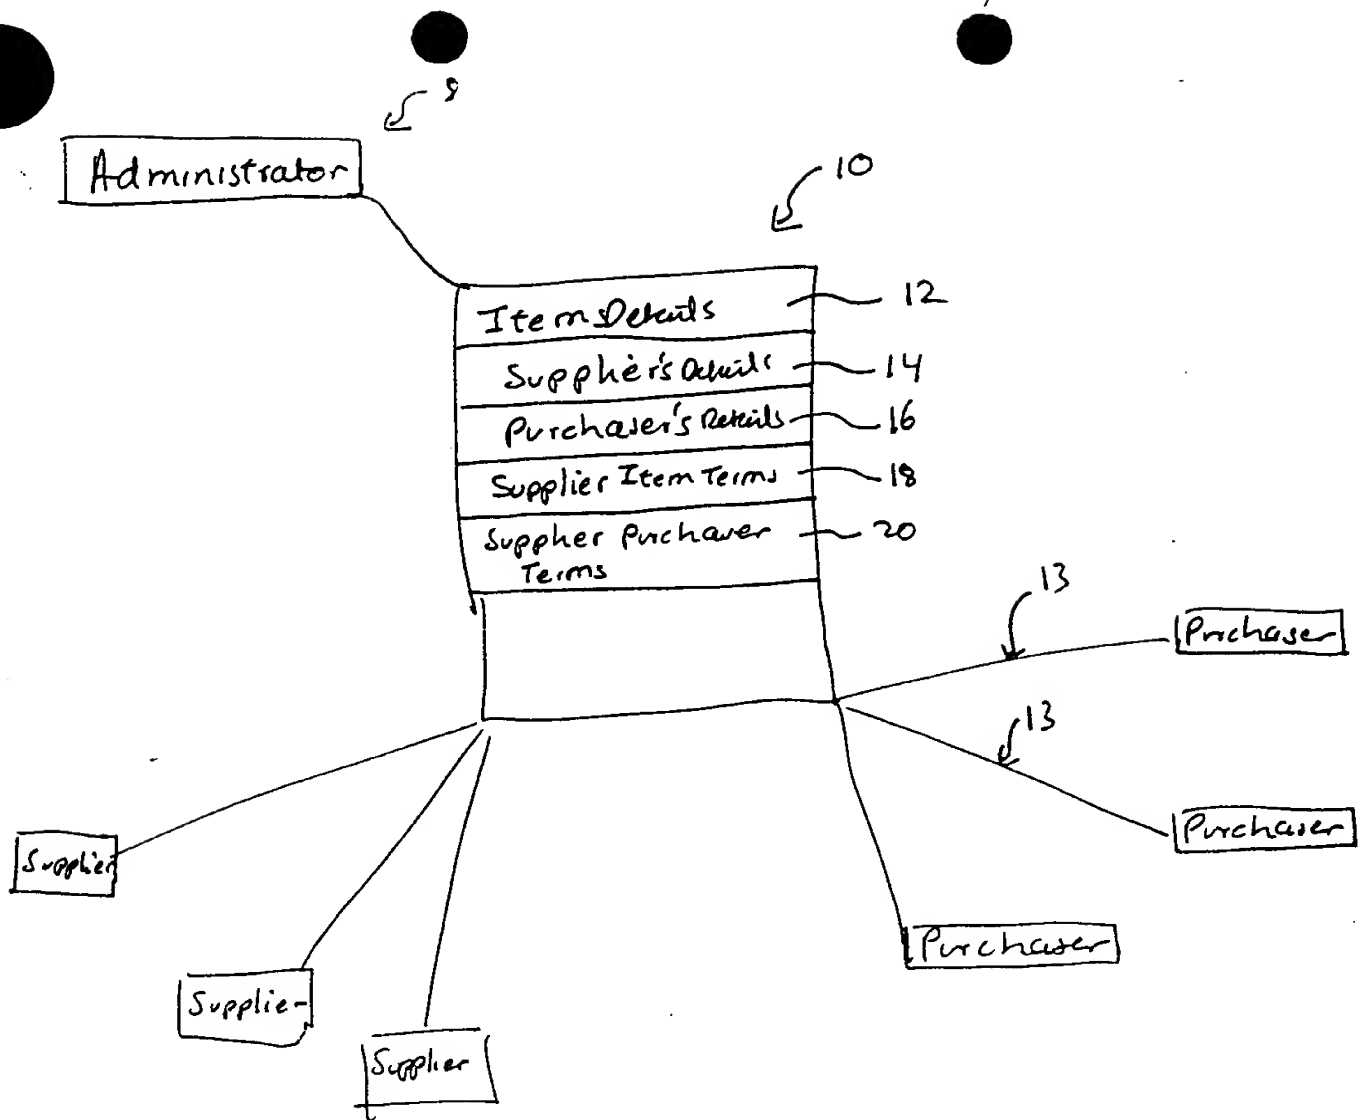 8
Administrator
10
Item Details 12
Supplier's Details 14
Purchaser's Details 16
Supplier Item Terms 18
Supplier Purchaser 20
Terms
13
Purchaser
13
Purchaser
Supplier
Purchaser
Supplier
Supplier